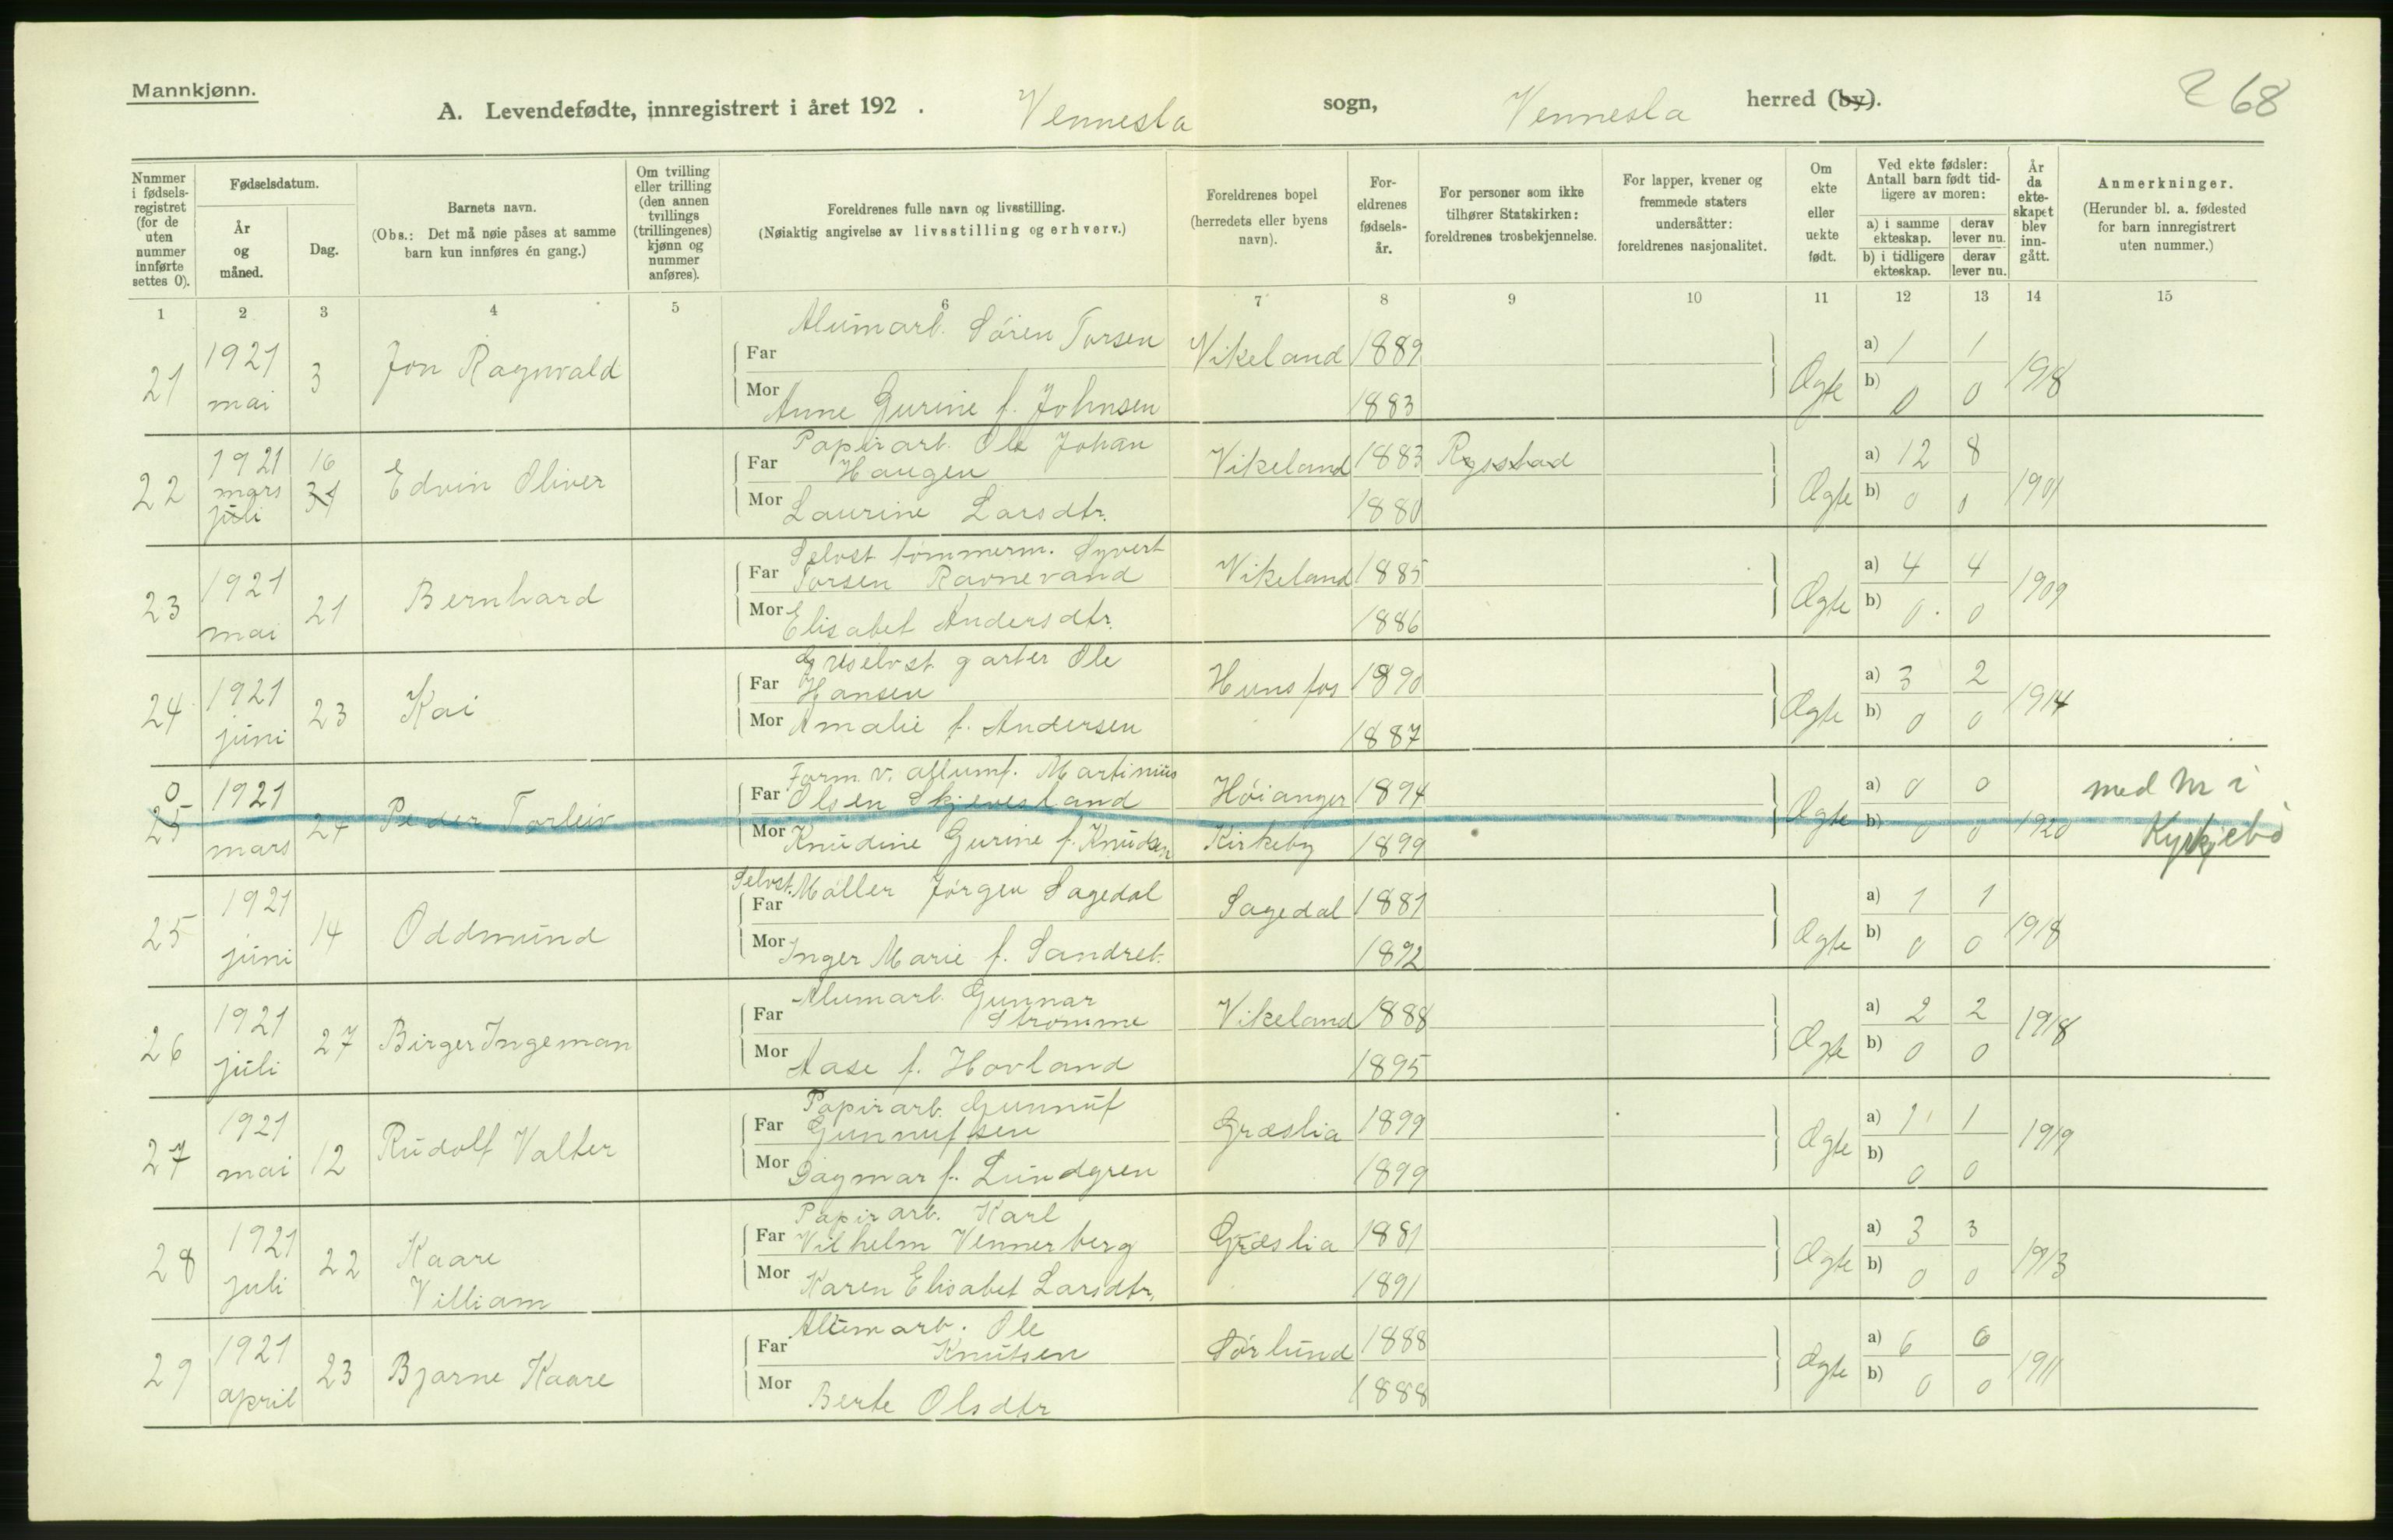 Mannkjønn.
A. Levendefødte, innregistrert i året 192 . Vennesla sogn, Vennesla herred (by). 268
Nummer i fødsels-registret (for de uten nummer innførte settes 0).
Fødselsdatum.
År og måned.
Dag.
Barnets navn.
(Obs.: Det må nøie påses at samme barn kun innføres én gang.)
Om tvilling eller trilling (den annen tvillings (trillingenes) kjønn og nummer anføres).
Foreldrenes fulle navn og livsstilling.
(Nøiaktig angivelse av livsstilling og erhverv.)
Foreldrenes bopel (herredets eller byens navn).
For-eldrenes fødsels-år.
For personer som ikke tilhører Statskirken: foreldrenes trosbekjennelse.
For lapper, kvener og fremmede staters undersåtter: foreldrenes nasjonalitet.
Om ekte eller uekte født.
Ved ekte fødsler: Antall barn født tid-ligere av moren:
a) i samme ekteskap. derav lever nu.
b) i tidligere ekteskap. derav lever nu.
År da ekte-skapet blev inn-gått.
Anmerkninger.
(Herunder bl. a. fødested for barn innregistrert uten nummer.)
1 2 3 4 5 6 7 8 9 10 11 12 13 14 15
21 1921 mai 3 Jon Ragnvald
Far Alumarb. Sören Torsen Vikeland 1889 Ægte a) 1 1 1918
Mor Anne Gurine f. Johnsen 1883 b) 0 0
22 1921 mars juli 16 31 Edvin Oliver
Far Papirarb. Ole Johan Haugen Vikeland 1883 Rysstad Ægte a) 12 8 1901
Mor Laurine Larsdtr. 1880 b) 0 0
23 1921 mai 21 Bernhard
Far Selvst tömmerm. Syvert Torsen Ravnevand Vikeland 1885 Ægte a) 4 4 1909
Mor Elisabet Andersdtr. 1886 b) 0 0
24 1921 juni 23 Kai
Far selvst garter Ole Hansen Hunsfos 1890 Ægte a) 3 2 1914
Mor Amalie f. Andersen 1887 b) 0 0
0 25 1921 mars 27 Peder Torleiv
Far Form. v. allumf. Martinius Olsen Skjevesland Höianger 1894 Ægte a) 0 0 1920 med M i
Mor Knudine Gurine f. Knudsen Kirkeby 1899 b) 0 0 Kyrkjebö
25 1921 juni 14 Oddmund
Far Selvst. Möller Jörgen Sagedal Sagedal 1881 Ægte a) 1 1 1918
Mor Inger Marie f. Sandret. 1892 b) 0 0
26 1921 juli 27 Birger Ingeman
Far Alumarb. Gunnar Strömme Vikeland 1888 Ægte a) 2 2 1918
Mor Aase f. Hovland 1895 b) 0 0
27 1921 mai 12 Rudolf Valter
Far Papirarb. Gunnuf Gunnufsen Græslia 1899 Ægte a) 1 1 1919
Mor Dagmar f. Lundgren 1899 b) 0 0
28 1921 juli 22 Kaare William
Far Papirarb. Karl Vilhelm Vennerberg Græslia 1881 Ægte a) 3 3 1913
Mor Karen Elisabet Larsdtr. 1891 b) 0 0
29 1921 april 23 Bjarne Kaare
Far Alumarb. Ole Knutsen Sörlund 1888 Ægte a) 6 6 1911
Mor Berte Olsdtr 1888 b) 0 0